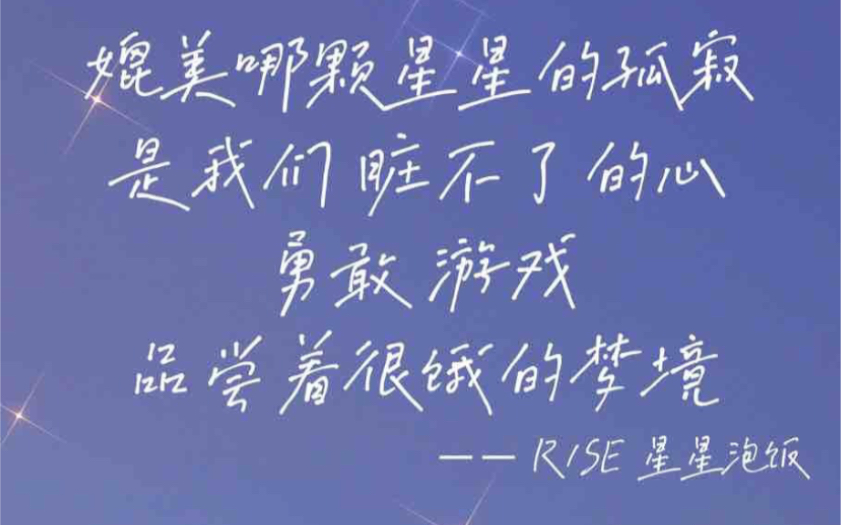 媲美哪颗星星的孤寂
是我们脏不了的心
勇敢游戏
品尝着很饿的梦境
—— RISE 星星泡饭